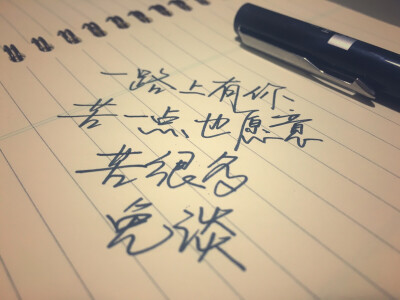 一路上有你、
苦一点也愿意
苦很多
免谈